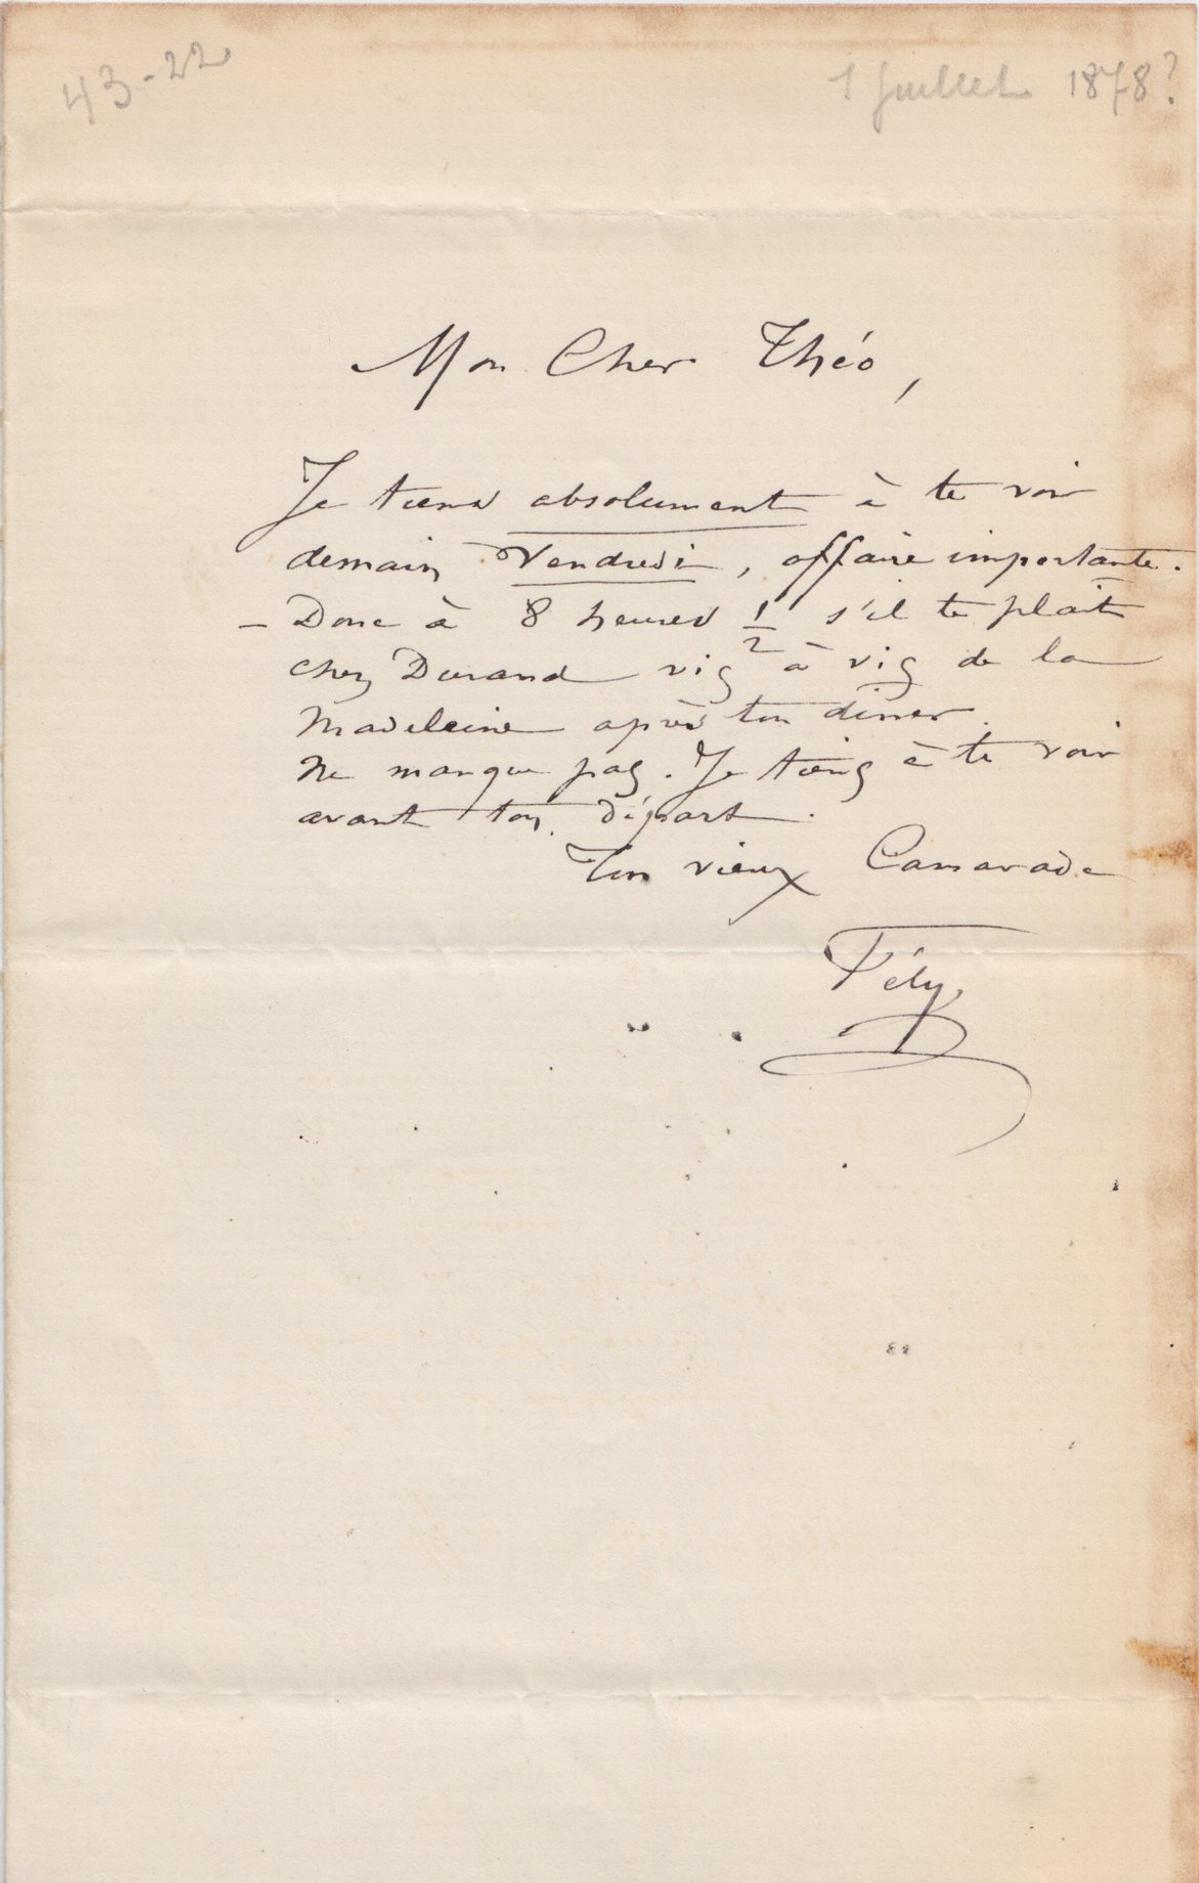 43-22
1 Juillet 1878?
Mon Cher Théo,
Je tiens absolument à te voir
demain Vendredi, affaire importante.
– Donc à 8 heures 1/2 s'il te plait
chez Durand vis à vis de la
Madeleine après ton diner.
Ne manque pas. Je tiens à te voir
avant ton départ.
Ton vieux Camarade
Fély